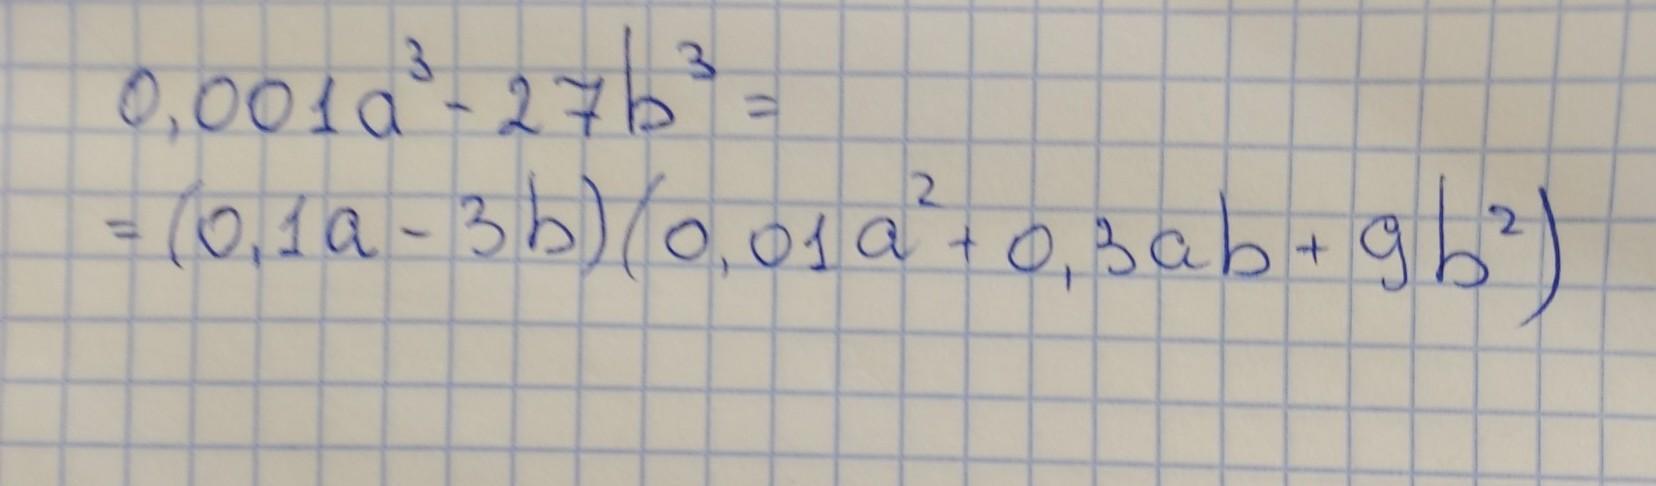 0,001a³ - 27b³ =
= (0,1a - 3b)(0,01a² + 0,3ab + 9b²)